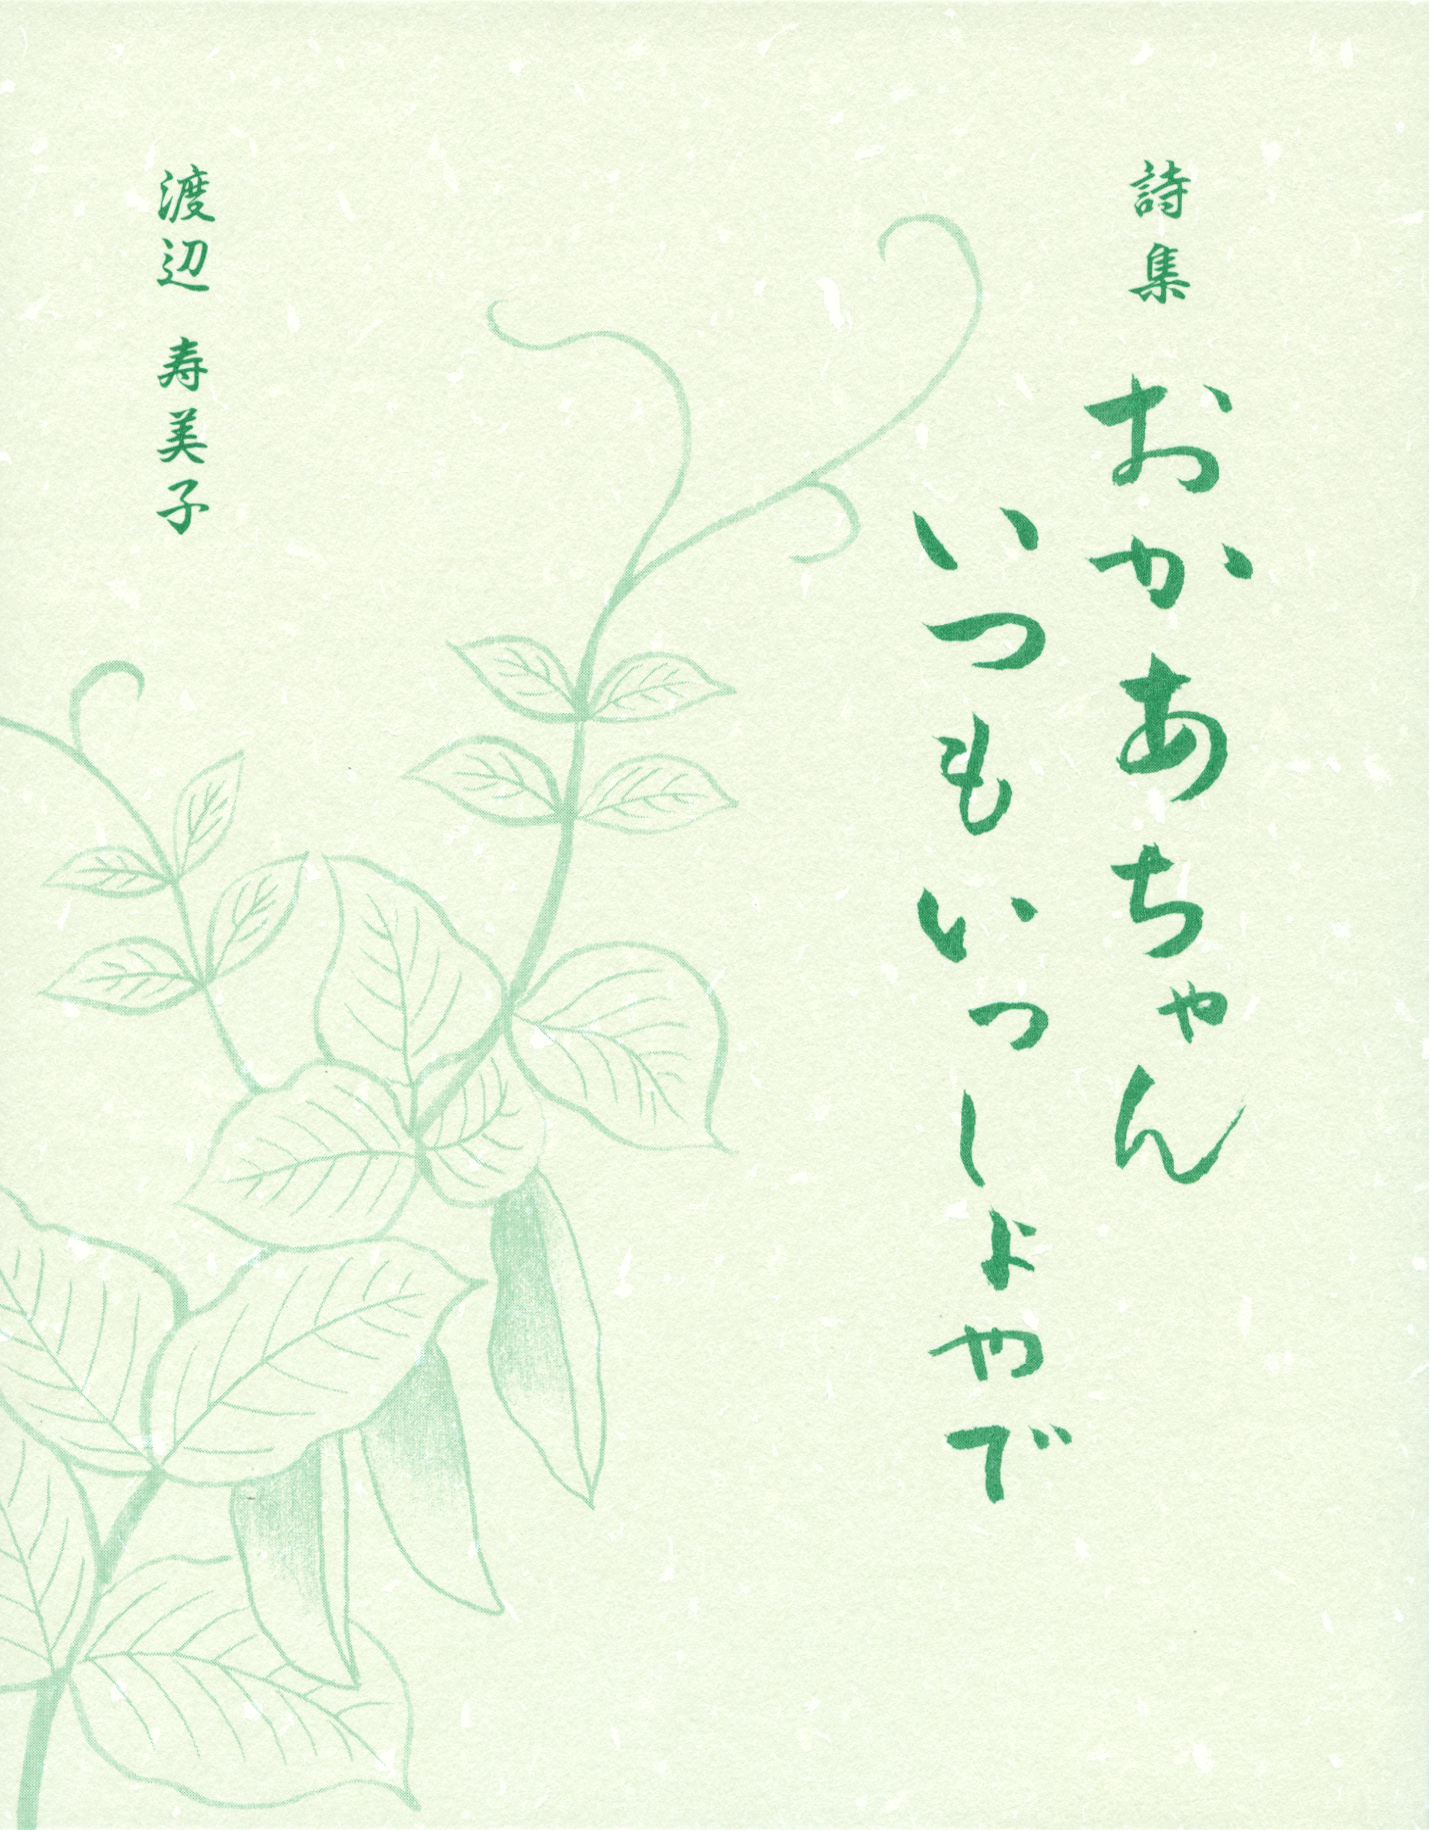 詩集 おかあちゃん
いつもいっしょやで
渡辺 寿美子